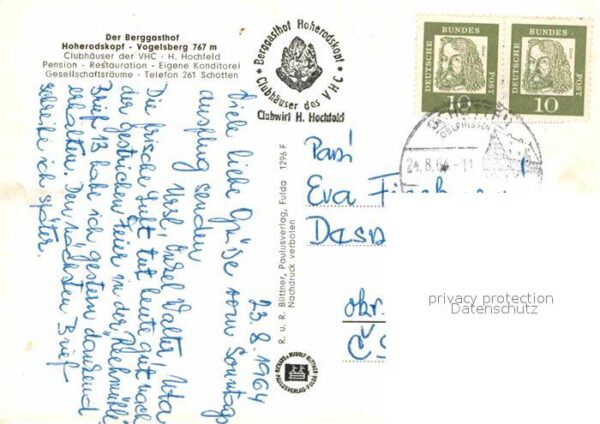 Der Berggasthof
Hoherodskopf - Vogelsberg 767 m
Clubhäuser der VHC · H. Hochfeld
Pension - Restauration - Eigene Konditorei
Gesellschaftsräume · Telefon 261 Schotten
Berggasthof Hoherodskopf
Clubhäuser des VHC
Clubwirt H. Hochfeld
DEUTSCHE BUNDES POST
10
DEUTSCHE BUNDES POST
10
24.8.64-11
23.8.1964
Viele liebe Grüße vom Sonntags
ausflug senden
Ursel, Onkel Walter, Uta
Die frische Luft tut heute gut nach
der gestrigen Feier in der
Brief 13 habe ich gestern dankend
erhalten. Den nächsten Brief
schreibe ich später.
R. u. R. Büttner, Paulusverlag, Fulda 1296 F
Nachdruck verboten
RICHARD & RUDOLF BÜTTNER
PAULUSVERLAG · FULDA
Paní
Eva
okr.
privacy protection
Datenschutz